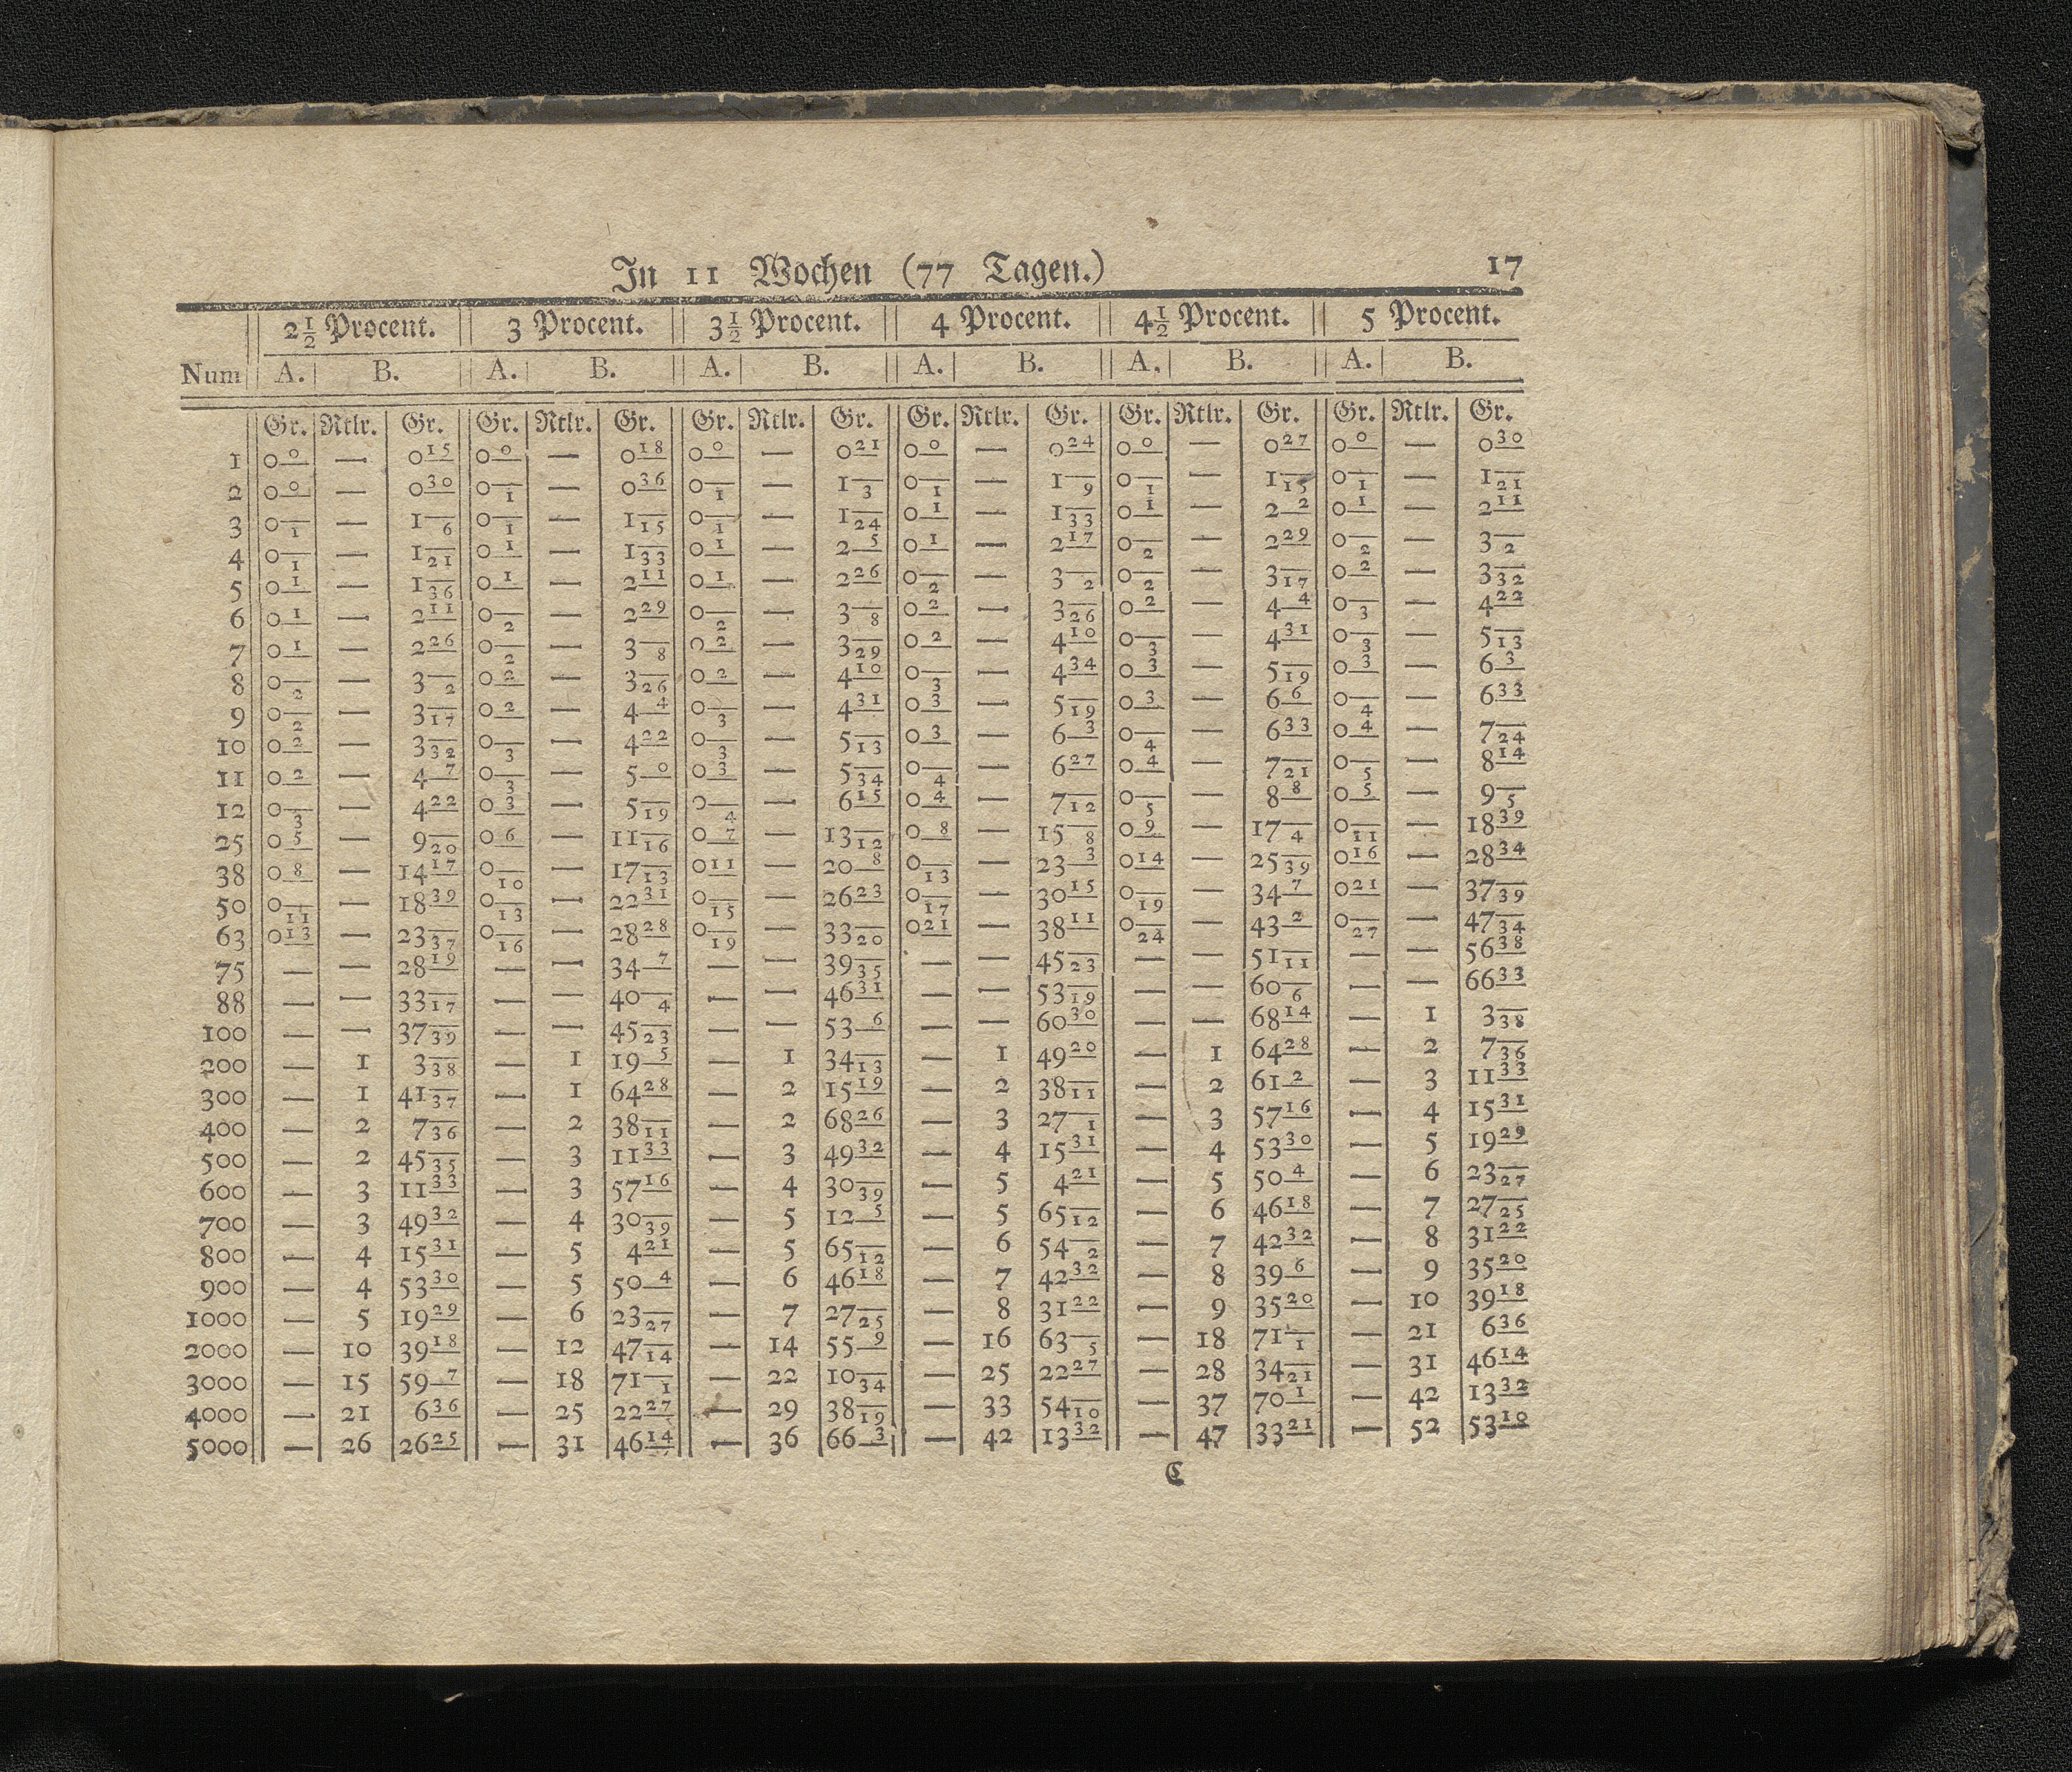 In 11 Wochen (77 Tagen.) 17
2 1/2 Procent. 3 Procent. 3 1/2 Procent. 4 Procent. 4 1/2 Procent. 5 Procent.
Num A. B. A. B. A. B. A. B. A. B. A. B.
Gr. Rtlr. Gr. Gr. Rtlr. Gr. Gr. Rtlr. Gr. Gr. Rtlr. Gr. Gr. Rtlr. Gr. Gr. Rtlr. Gr.
1 0 0 — 0 15 0 0 — 0 18 0 0 — 0 21 0 0 — 0 24 0 0 — 0 27 0 0 — 0 30
2 0 0 — 0 30 0 1 — 0 36 0 1 — 1 3 0 1 — 1 9 0 1 — 1 15 0 1 — 1 21
3 0 1 — 1 6 0 1 — 1 15 0 1 — 1 24 0 1 — 1 33 0 1 — 2 2 0 1 — 2 11
4 0 1 — 1 21 0 1 — 1 33 0 1 — 2 5 0 1 — 2 17 0 2 — 2 29 0 2 — 3 2
5 0 1 — 1 36 0 1 — 2 11 0 1 — 2 26 0 2 — 3 2 0 2 — 3 17 0 2 — 3 32
6 0 1 — 2 11 0 2 — 2 29 0 2 — 3 8 0 2 — 3 26 0 2 — 4 4 0 3 — 4 22
7 0 1 — 2 26 0 2 — 3 8 0 2 — 3 29 0 2 — 4 10 0 3 — 4 31 0 3 — 5 13
8 0 2 — 3 2 0 2 — 3 26 0 2 — 4 10 0 3 — 4 34 0 3 — 5 19 0 3 — 6 3
9 0 2 — 3 17 0 2 — 4 4 0 3 — 4 31 0 3 — 5 19 0 3 — 6 6 0 4 — 6 33
10 0 2 — 3 32 0 3 — 4 22 0 3 — 5 13 0 3 — 6 3 0 4 — 6 33 0 4 — 7 24
11 0 2 — 4 7 0 3 — 5 0 0 3 — 5 34 0 4 — 6 27 0 4 — 7 21 0 5 — 8 14
12 0 3 — 4 22 0 3 — 5 19 0 4 — 6 15 0 4 — 7 12 0 5 — 8 8 0 5 — 9 5
25 0 5 — 9 20 0 6 — 11 16 0 7 — 13 12 0 8 — 15 8 0 9 — 17 4 0 11 — 18 39
38 0 8 — 14 17 0 10 — 17 13 0 11 — 20 8 0 13 — 23 3 0 14 — 25 39 0 16 — 28 34
50 0 11 — 18 39 0 13 — 22 31 0 15 — 26 23 0 17 — 30 15 0 19 — 34 7 0 21 — 37 39
63 0 13 — 23 37 0 16 — 28 28 0 19 — 33 20 0 21 — 38 11 0 24 — 43 2 0 27 — 47 34
75 — — 28 19 — — 34 7 — — 39 35 — — 45 23 — — 51 11 — — 56 38
88 — — 33 17 — — 40 4 — — 46 31 — — 53 19 — — 60 6 — — 66 33
100 — — 37 39 — — 45 23 — — 53 6 — — 60 30 — — 68 14 — 1 3 38
200 — 1 3 38 — 1 19 5 — 1 34 13 — 1 49 20 — 1 64 28 — 2 7 36
300 — 1 41 37 — 1 64 28 — 2 15 19 — 2 38 11 — 2 61 2 — 3 11 33
400 — 2 7 36 — 2 38 11 — 2 68 26 — 3 27 1 — 3 57 16 — 4 15 31
500 — 2 45 35 — 3 11 33 — 3 49 32 — 4 15 31 — 4 53 30 — 5 19 29
600 — 3 11 33 — 3 57 16 — 4 30 39 — 5 4 21 — 5 50 4 — 6 23 27
700 — 3 49 32 — 4 30 39 — 5 12 5 — 5 65 12 — 6 46 18 — 7 27 25
800 — 4 15 31 — 5 4 21 — 5 65 12 — 6 54 2 — 7 42 32 — 8 31 22
900 — 4 53 30 — 5 50 4 — 6 46 18 — 7 42 32 — 8 39 6 — 9 35 20
1000 — 5 19 29 — 6 23 27 — 7 27 25 — 8 31 22 — 9 35 20 — 10 39 18
2000 — 10 39 18 — 12 47 14 — 14 55 9 — 16 63 5 — 18 71 1 — 21 6 36
3000 — 15 59 7 — 18 71 1 — 22 10 34 — 25 22 27 — 28 34 21 — 31 46 14
4000 — 21 6 36 — 25 22 27 — 29 38 19 — 33 54 10 — 37 70 1 — 42 13 32
5000 — 26 26 25 — 31 46 14 — 36 66 3 — 42 13 32 — 47 33 21 — 52 53 10
C